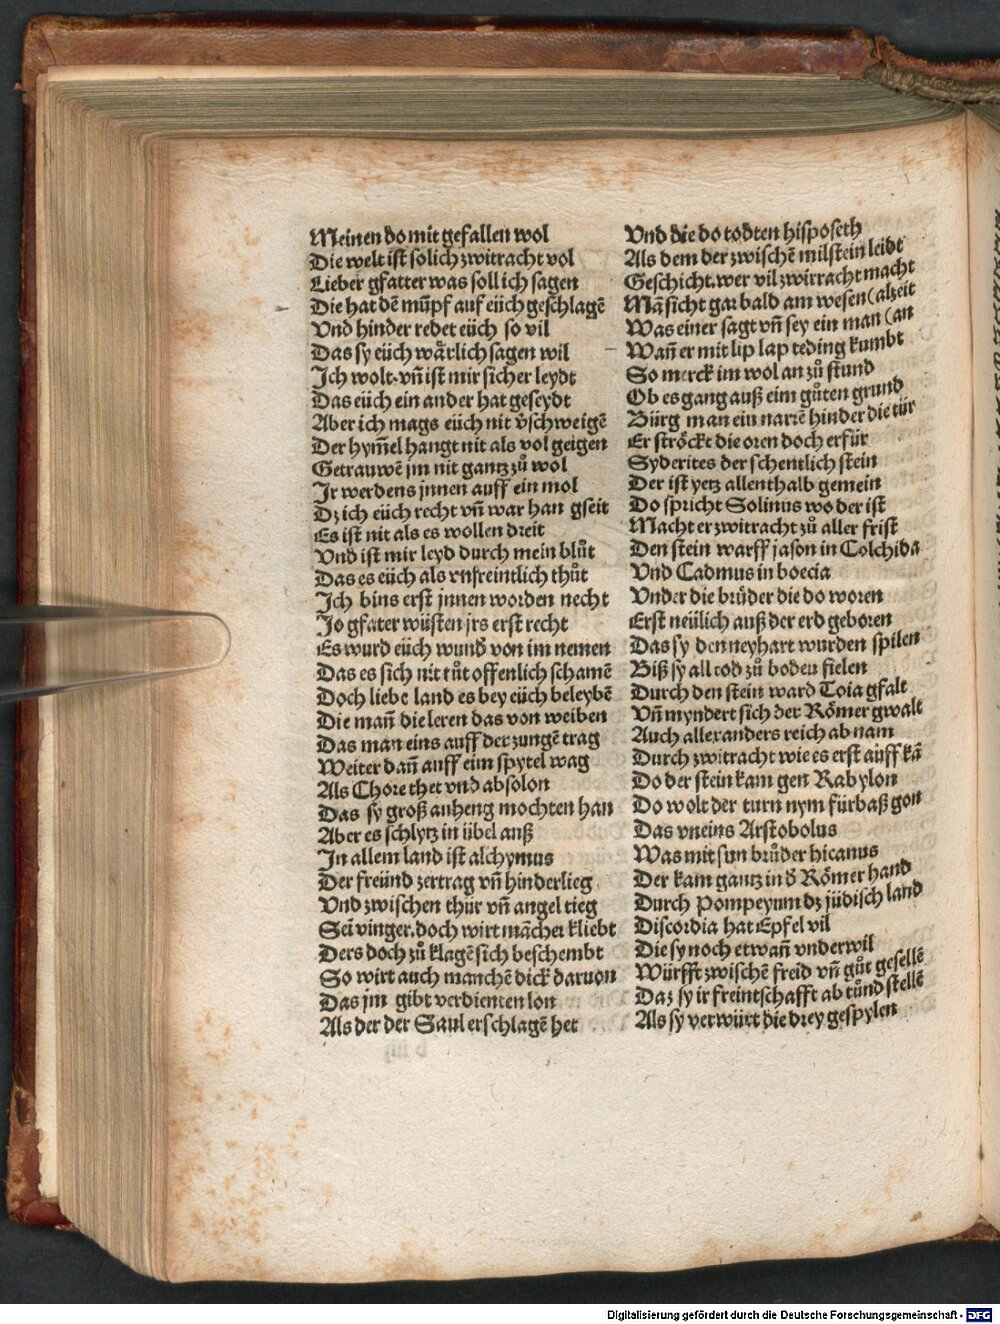 Meinen do mit gefallen wol
Die welt ist solich zwitracht vol
Lieber gfatter was soll ich sagen
Die hat dē mūpf auf eüch geschlagē
Vnd hinder redet eüch so vil
Das sy eüch wärlich sagen wil
Ich wolt. vn̄ ist mir sicher leydt
Das eüch ein ander hat geseydt
Aber ich mags eüch nit v̄schweigē
Der hym̄el hangt nit als vol geigen
Getrauwē jm nit gantz zů wol
Jr werdens jnnen auff ein mol
Dz ich eüch recht vn̄ war han gseit
Es ist nit als es wollen dreit
Vnd ist mir leyd durch mein blůt
Das es eüch als vnfreintlich thůt
Ich bins erst jnnen worden necht
Jo gfater wüsten jrs erst recht
Es wurd eüch wund von im nemen
Das es sich nit tůt offenlich schamē
Doch liebe land es bey eüch beleybē
Die man̄ die leren das von weiben
Das man eins auff der zungē trag
Weiter dan̄ auff eim spytel wag
Als Chore thet vnd absolon
Das sy groß anheng mochten han
Aber es schlytz in übel auß
In allem land ist alchymus
Der freünd zertrag vn̄ hinderlieg
Vnd zwischen thür vn̄ angel tieg
Sei vinger. doch wirt mācher kliebt
Ders doch zů klagē sich beschembt
So wirt auch manchē dick daruon
Das jm gibt verdienten lon
Als der der Saul erschlagē het
Vnd die do todten hisposeth
Als dem der zwischē milstein leidt
Geschicht. wer vil zwitracht macht
Mā sicht gar bald am wesen (alzeit
Was einer sagt vn̄ sey ein man (an
Wan̄ er mit lip lap teding kumbt
So merck im wol an zů stund
Ob es gang auß eim gůten grund
Bürg man ein narrē hinder die tür
Er ströckt die oren doch erfür
Syderites der schentlich stein
Der ist yetz allenthalb gemein
Do spricht Solinus wo der ist
Macht er zwitracht zů aller frist
Den stein warff jason in Colchida
Vnd Cadmus in boecia
Vnder die brüder die do woren
Erst neülich auß der erd geboren
Das sy den neyhart wurden spilen
Biß sy all tod zů boden fielen
Durch den stein ward Toia gfalt
Vn̄ myndert sich der Römer gwalt
Auch allexanders reich ab nam
Durch zwitracht wie es erst auff kā
Do der stein kam gen Babylon
Do wolt der turn nym fürbaß gon
Das vneins Arstobolus
Was mit sun brůder hicanus
Der kam gantz in d̄ Römer hand
Durch Pompeyum dz jüdisch land
Discordia hat Epfel vil
Die sy noch etwan̄ vnderwil
Würfft zwischē freid vn̄ gůt gesellē
Daz sy ir freintschafft ab tůnd stellē
Als sy verwürt die drey gespylen
Digitalisierung gefördert durch die Deutsche Forschungsgemeinschaft - DFG